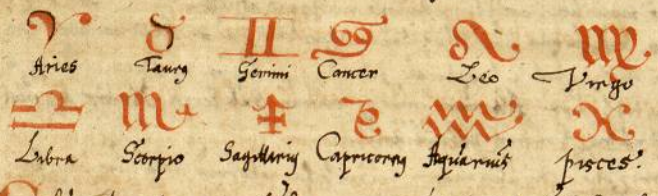 ♈ ♉ ♊ ♋ ♌ ♍
Aries Taurꝰ Gemini Cancer Leo Virgo
♎ ♏ ♐ ♑ ♒ ♓
Libra Scorpio Sagittariꝰ Capricornꝰ Aquarius pisces.